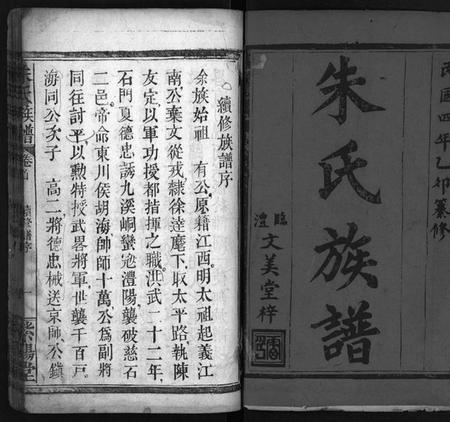 民國四年乙卯纂修
朱氏族譜
臨澧文美堂梓
續修族譜序
余族始祖 有公原籍江西明太祖起義江
南公棄文從戎隸徐達麾下取太平路執陳
友定以軍功授都指揮之職洪武二十二年
石門夏德忠誘九溪峒蠻寇澧陽襲破慈石
二邑帝命東川侯胡海帥師十萬公為副將
同往討平以勲特授武畧將軍世襲千百戶
海同公次子 高二將德忠械送京師公鎮
朱氏族譜 卷首 續修譜序 一 紫陽堂